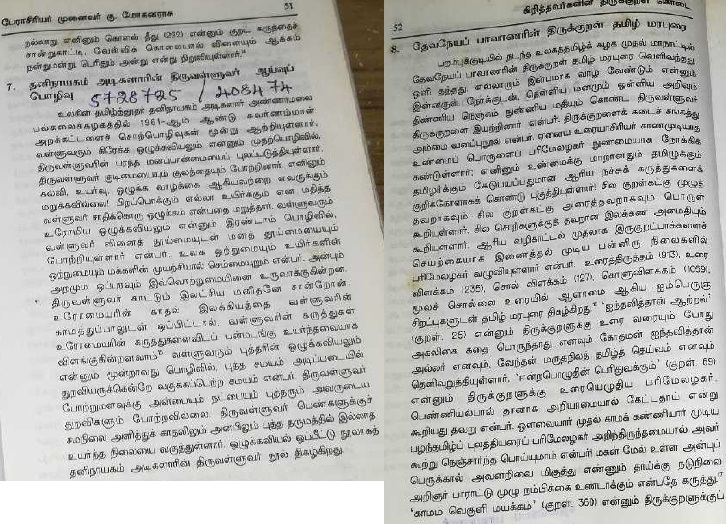 பேராசிரியர் முனைவர் கு. மோகனராசு 51
நல்லாறு எனினும் கொளல் தீது (222) என்னும் குறட் கருத்தைச்
சான்றுகாட்டி, வேள்விக் கொலையால் விளையும் ஆக்கம்
நன்றுமன்று, பெரிதும் அன்று என்று நிறுவியுள்ளார்.
7. தனிநாயகம் அடிகளாரின் திருவள்ளுவர் ஆய்வுப்
பொழிவு 5728725 / 408474
உலகின் தமிழ்த்தூதர் தனிநாயகம் அடிகளார் அண்ணாமலை
பல்கலைக்கழகத்தில் 1961-ஆம் ஆண்டு சொர்ணம்மாள்
அறக்கட்டளைச் சொற்பொழிவுகள் மூன்று ஆற்றியுள்ளார்.
வள்ளுவரும் கிரேக்க ஒழுக்கவியலும் என்னும் முதற்பொழிவில்,
திருவள்ளுவரின் பரந்த மனப்பான்மையைப் புலப்படுத்தியுள்ளார்.
திருவள்ளுவர் குடிமையையும் குலத்தையும் போற்றினார் எனினும்
கல்வி, உயர்வு, ஒழுக்க வாழ்க்கை ஆகியவற்றை எவருக்கும்
மறுக்கவில்லை! பிறப்பொக்கும் எல்லா உயிர்க்கும் என மதித்த
வள்ளுவர் சாதிக்கொரு ஒழுக்கம் என்பதை மறுத்தார். வள்ளுவரும்
உரோமிய ஒழுக்கவியலும் என்னும் இரண்டாம் பொழிவில்,
வள்ளுவர் வினைத் தூய்மையுடன் மனத் தூய்மையையும்
போற்றியுள்ளார் என்பர். உலக ஒற்றுமையும் உயிர்களின்
ஒற்றுமையும் மக்களின் முயற்சியால் செம்மையுறும் என்பர். அன்பும்
அறமும் ஒப்புரவும் இவ்வொற்றுமையினை உருவாக்குகின்றன.
திருவள்ளுவர் காட்டும் இலட்சிய மனிதனே சான்றோன்.
உரோமையரின் காதல் இலக்கியத்தை வள்ளுவரின்
காமத்துப்பாலுடன் ஒப்பிட்டால், வள்ளுவரின் கருத்துகள்
உரோமையரின் கருத்துகளைவிடப் பன்மடங்கு உயர்ந்தவையாக
விளங்குகின்றனவாம். வள்ளுவரும் புத்தரின் ஒழுக்கவியலும்
என்னும் மூன்றாவது பொழிவில், புத்த சமயம் அடிப்படையில்
துறவியருக்கென்றே வகுக்கப்பெற்ற சமயம் என்பர். திருவள்ளுவர்
போற்றுமளவுக்கு அன்பையும் நட்பையும் புத்தரும் அவருடைய
துறவிகளும் போற்றவில்லை. திருவள்ளுவர் பெண்களுக்குச்
சமநிலை அளித்துக் காதலிலும் அன்பிலும் புத்த தருமத்தில் இல்லாத
உயர்ந்த நிலையை வகுத்துள்ளார். ஒழுக்கவியல் ஒப்பீட்டு நூலாகத்
தனிநாயகம் அடிகளாரின் திருவள்ளுவர் நூல் திகழ்கிறது.
52 கிறித்தவர்களின் திருக்குறள் கொடை
8. தேவநேயப் பாவாணரின் திருக்குறள் தமிழ் மரபுரை
பறம்புக்குடியில் நடந்த உலகத்தமிழ்க் கழக முதல் மாநாட்டில்
தேவநேயப் பாவாணரின் திருக்குறள் தமிழ் மரபுரை வெளிவந்தது.
ஒளி தந்தது. எல்லாரும் இன்பமாக வாழ வேண்டும் என்னும்
இன்னருள் நோக்குடன், தெள்ளிய மனமும் ஒள்ளிய அறிவும்
திண்ணிய நெஞ்சும் நுண்ணிய மதியும் கொண்ட திருவள்ளுவர்
திருக்குறளை இயற்றினார் என்பர். திருக்குறளைக் கடைச் சங்கத்து
அம்மை வடிப்புநூல் என்பர். ஏனைய உரையாசிரியர் காணமுடியாத
உண்மைப் பொருளைப் பரிமேலழகர் நுண்மையாக நோக்கிக்
கண்டுள்ளார்; எனினும் உண்மைக்கு மாறானதும் தமிழுக்கும்
தமிழர்க்கும் கேடுபயப்பதுமான ஆரிய நச்சுக் கருத்துகளைக்
குறிக்கோளாகக் கொண்டு புகுத்தியுள்ளார்! சில குறள்கட்கு முழுத்
தவறாகவும் சில குறள்கட்கு அரைத்தவறாகவும் பொருள்
கூறியுள்ளார். சில சொற்களுக்குத் தவறான இலக்கண அமைதியும்
கூறியுள்ளார். ஆரிய வழிகாட்டல் முதலாக இருகுறட்பாக்களைச்
செயற்கையாக இணைத்தல் முடிய பன்னிரு நிலைகளில்
பரிமேலழகர் வழுவியுள்ளார் என்பர். உரைத்திருத்தம் (913), உரை
விளக்கம் (235), சொல் விளக்கம் (127), கொளுவிளக்கம் (1059),
மூலச் சொல்லை உரையில் ஆளாமை ஆகிய ஐம்பெருஞ்
சிறப்புகளுடன் தமிழ் மரபுரை திகழ்கிறது. 'ஐந்தவித்தான் ஆற்றல்'
(குறள். 25) என்னும் திருக்குறளுக்கு உரை வரையும் போது
அகலிகை கதை பொருந்தாது எனவும் கோதமன் ஐந்தவித்தான்
அல்லன் எனவும், வேந்தன் மருதநிலத் தமிழ்த் தெய்வம் எனவும்
தெளிவுறுத்தியுள்ளார். 'ஈன்றபொழுதின் பெரிதுவக்கும்' (குறள். 69)
என்னும் திருக்குறளுக்கு உரையெழுதிய பரிமேலழகர்,
பெண்ணியல்பால் தானாக அறியாமையால் கேட்டதாய் என்று
கூறியது தவறு என்பர். ஔவையார் முதல் காமக் கண்ணியார் முடிய
பழந்தமிழ்ப் புலத்தியரைப் பரிமேலழகர் அறிந்திருந்தமையால் அவர்
கூற்று நெஞ்சறிந்த பொய்யுமாம் என்பர் மகன் மேல் உள்ள அன்புப்
பெருக்கால் அவளறிவை மிகுத்து எண்ணும் தாய்க்கு நடுநிலை
அறிஞர் பாராட்டு முழு நம்பிக்கை உண்டாக்கும் என்பதே கருத்து.
'காமம் வெகுளி மயக்கம்' (குறள். 360) என்னும் திருக்குறளுக்குப்